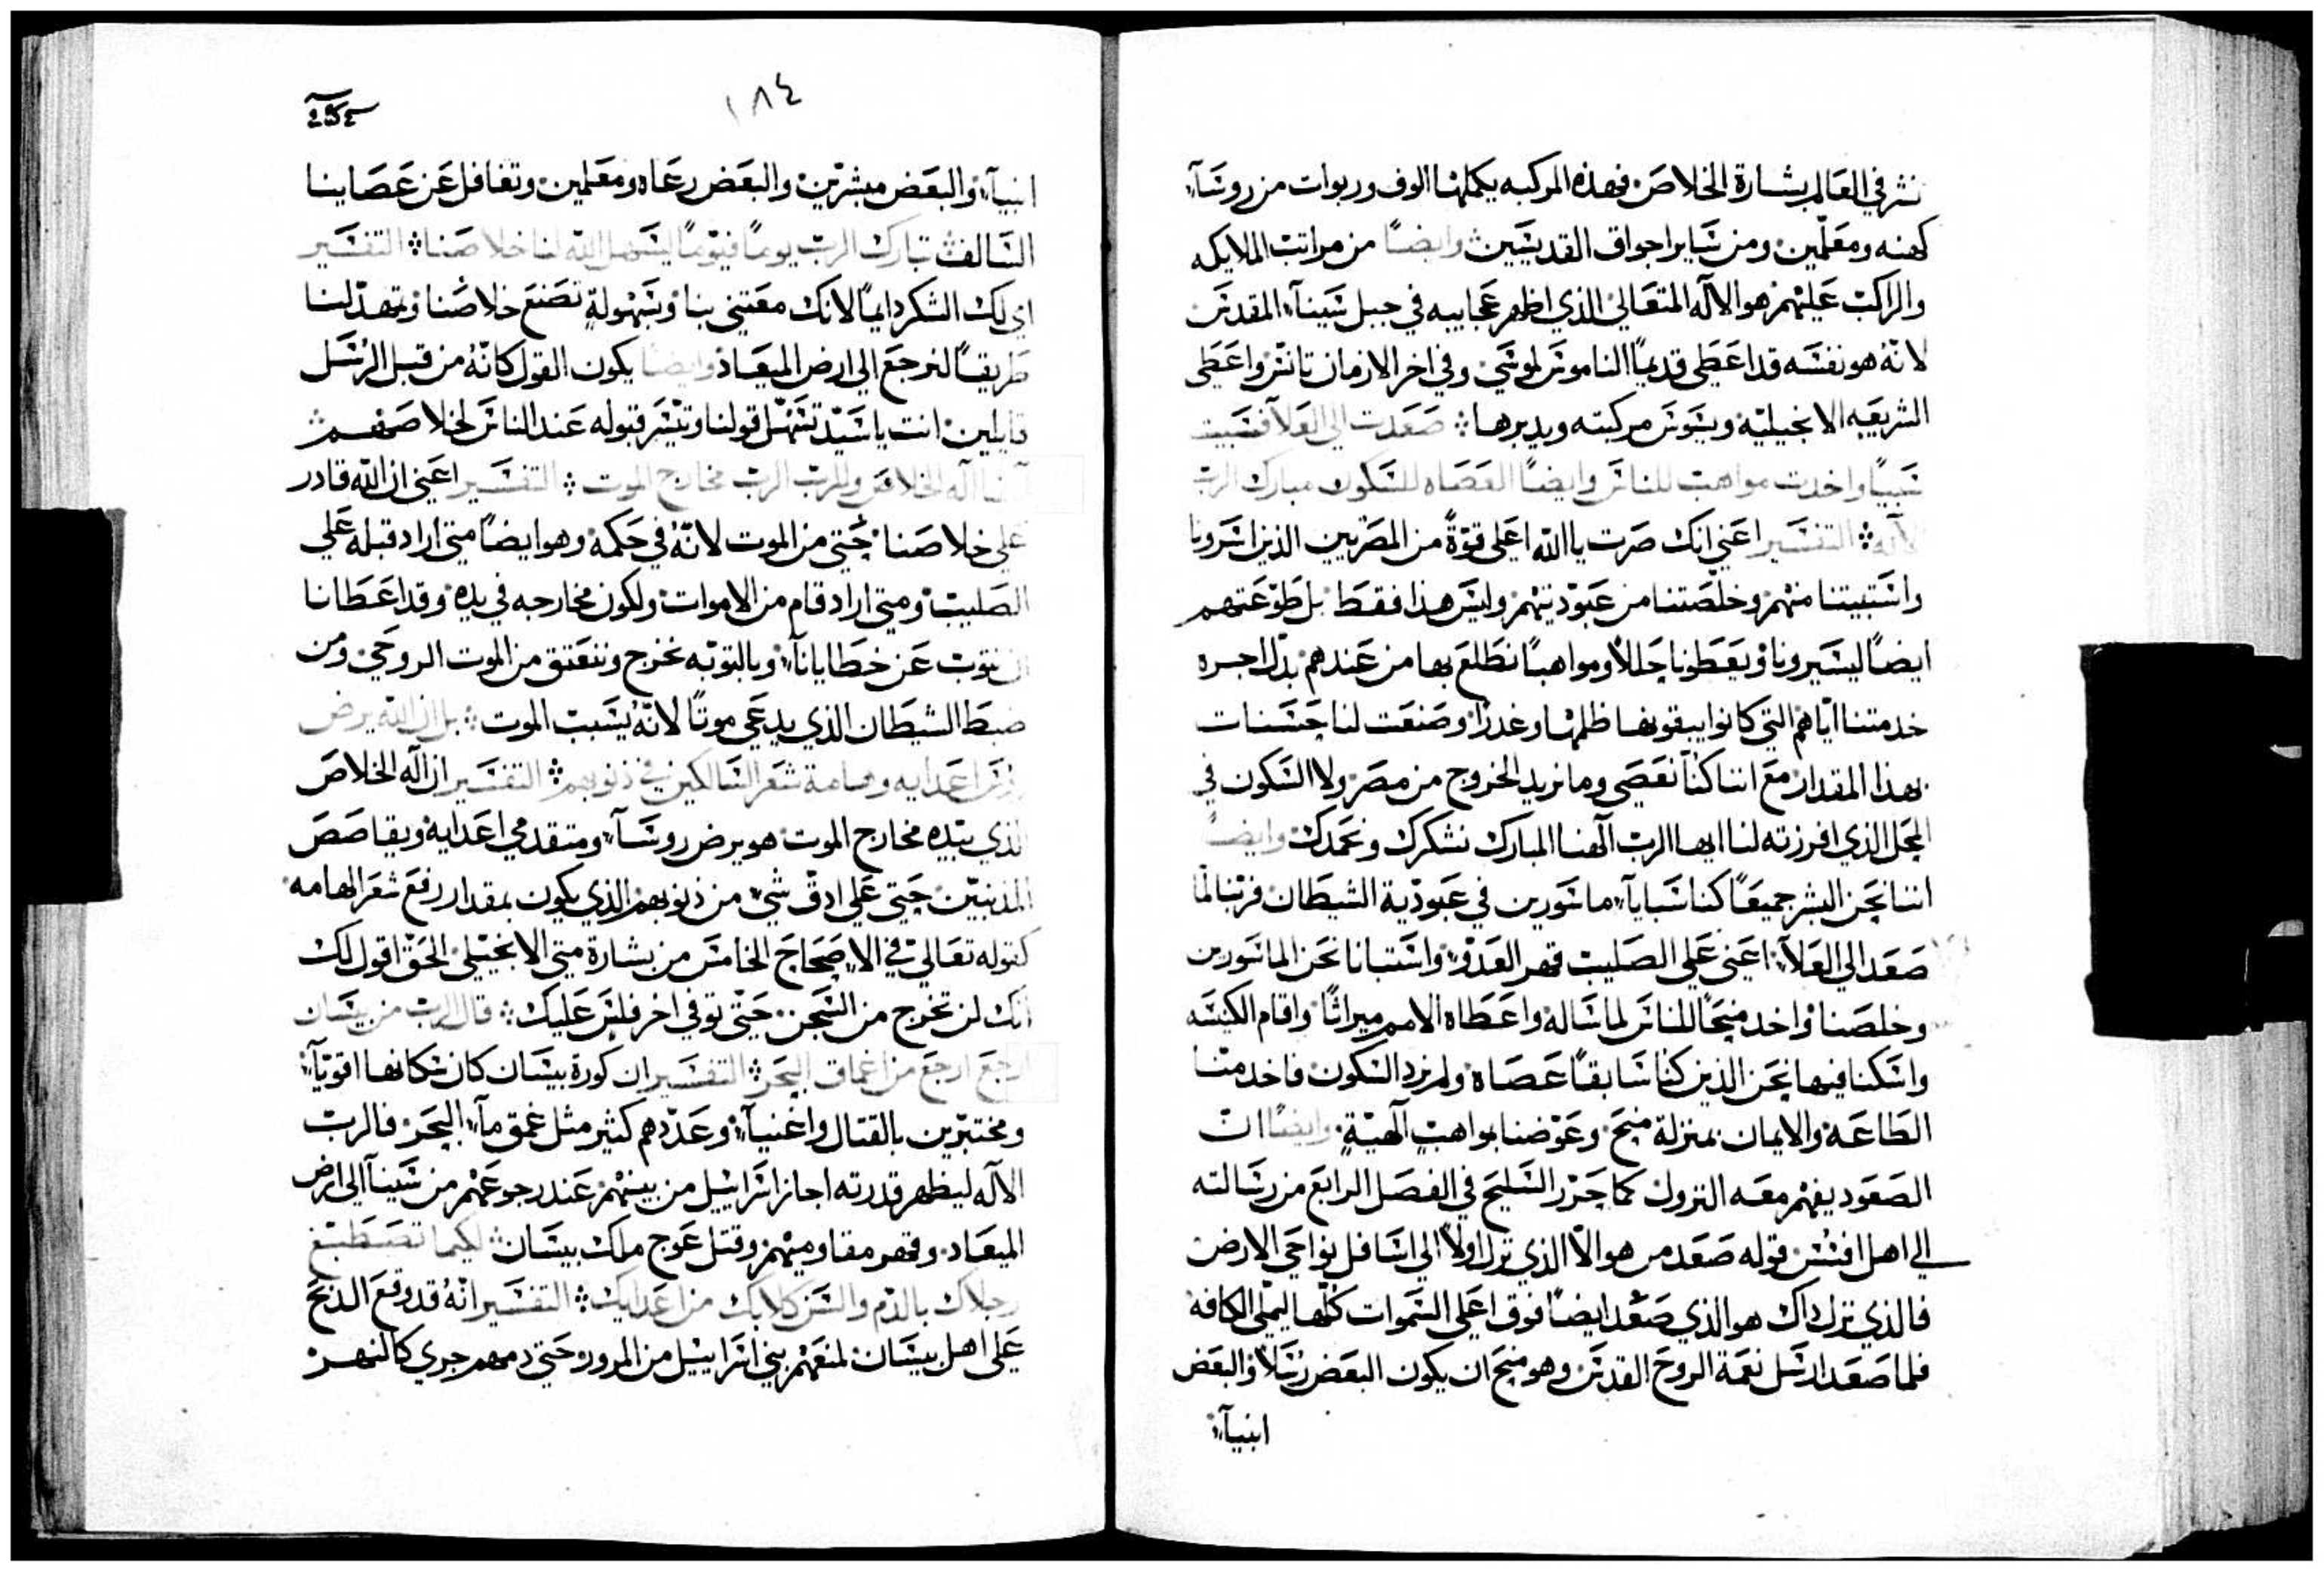 نشر في العالم بشارة الخلاص فهذه المركبه يكملها الوف وربوات من روسآء
كهنه ومعلمين ومن ساير اجواق القديسين وايضًا من مراتب الملايكه
والراكب عليهم هو الاله المتعالي الذي اظهر عجايبه في جبل سينآء المقدس
لانه هو نفسه قد اعطى قديمًا الناموس لموسي وفي اخر الازمان تانس واعطى
الشريعه الانجيليه ويسوس مركبته ويدبرها صعدت الي العلآ فسبيت
سبيًا واخدت مواهب للناس وايضًا العصاه للسكون مبارك الرب
الاله التفسير اعني انك صرت ياالله اعلى قوةً من المصريين الذين اسرونا
واستبيتنا منهم وخلصتنا من عبوديتهم وليس هذا فقط بل طوعتهم
ايضًا ليسيرونا ويعطونا حللاً ومواهبًا نطلع بها من عندهم بدل اجره
خدمتنا اياهم التي كانوا يبقونها ظلمًا وغدرًا وصنعت لنا حسنات
بهذا المقدار مع اننا كنا نعصي وما نريد الخروج من مصر ولا السكون في
المحل الذي افرزته لنا ايها الرب الهنا المبارك نشكرك ونحمدك وايضًا
اننا نحن البشر جميعًا كنا سبايآء ماسورين في عبودية الشيطان فربنا لما
صعد الي العلآء اعني علي الصليب قهر العدو واستبانا نحن الماسورين
وخلصنا واخد منحًا للناس لما ساله واعطاه الامم ميراثًا واقام الكنيسه
واسكنا فيها نحن الذين كنا سابقًا عصاه ولم نرد السكون فاخد منا
الطاعه والايمان بمنزلة منح وعوضنا بمواهب الهية وايضًا ان
الصعود يفهم معه النزول كما حرر السليح في الفصل الرابع من رسالته
الي اهل افسس قوله صعد من هو الا الذي نزل اولاً الي اسافل نواحي الارض
فالذي نزل داك هو الذي صعد ايضًا فوق اعلي السموات كلها ليملي الكافه
فلما صعد ارسل نعمة الروح القدس وهو منح ان يكون البعض رسلاً والبعض
انبيآء
١٨٤
انبيآء والبعض مبشرين والبعض رعاه ومعلمين وتغافل عن عصاينا
السالف تبارك الرب يومًا فيومًا ليسهل الله لنا خلاصنا التفسير
اي لك الشكر دايمًا لانك معتني بنا وبسهولةٍ تصنع خلاصنا وتمهد لنا
طريقًا لنرجع الي ارض الميعاد وايضًا يكون القول كانه من قبل الرسل
قايلين انت ياسيد تسهل قولنا وتيسر قبوله عند الناس لخلاصهم
آلهنا اله الخلاص وللرب الرب مخارج الموت التفسير اعني ان الله قادر
علي خلاصنا حتي من الموت لانه في حكمه وهو ايضًا متي اراد قبله علي
الصليب ومتي اراد قام من الاموات ولكون مخارجه في يده وقد اعطانا
ان نتوب عن خطايانآء وبالتوبه نخرج وننعتق من الموت الروحي ومن
ضبط الشيطان الذي يدعي موتًا لانه يسبب الموت بل ان الله يرض
روس اعدايه وهامة شعر السالكين في ذنوبهم التفسير ان اله الخلاص
الذي بيده مخارج الموت هو يرض روسآء ومتقدمي اعدايه ويقاصص
المذنبين حتي علي ادق شي من ذنوبهم الذي يكون بمقدار رفع شعر الهامه
كقوله تعالي في الاصحاح الخامس من بشارة متي الانجيلي الحق اقول لك
انك لن تخرج من السجن حتي توفي اخر فلس عليك قال الرب من بيسان
ارجع ارجع من اعماق البحر التفسير ان كورة بيسان كان سكانها اقويآء
ومختبرين بالقتال واغنيآء وعددهم كثير مثل عمق مآء البحر فالرب
الاله ليظهر قدرته اجاز اسراييل من بينهم عند رجوعهم من سينآ الي ارض
الميعاد وقهر مقاوميهم وقتل عوج ملك بيسان لكيما تصطبغ
رجلاك بالدم والسن كلابك من اعدايك التفسير انه قد وقع الدبح
علي اهل بيسان لمنعهم بني اسراييل من المرور حتي دمهم جري كالنهر